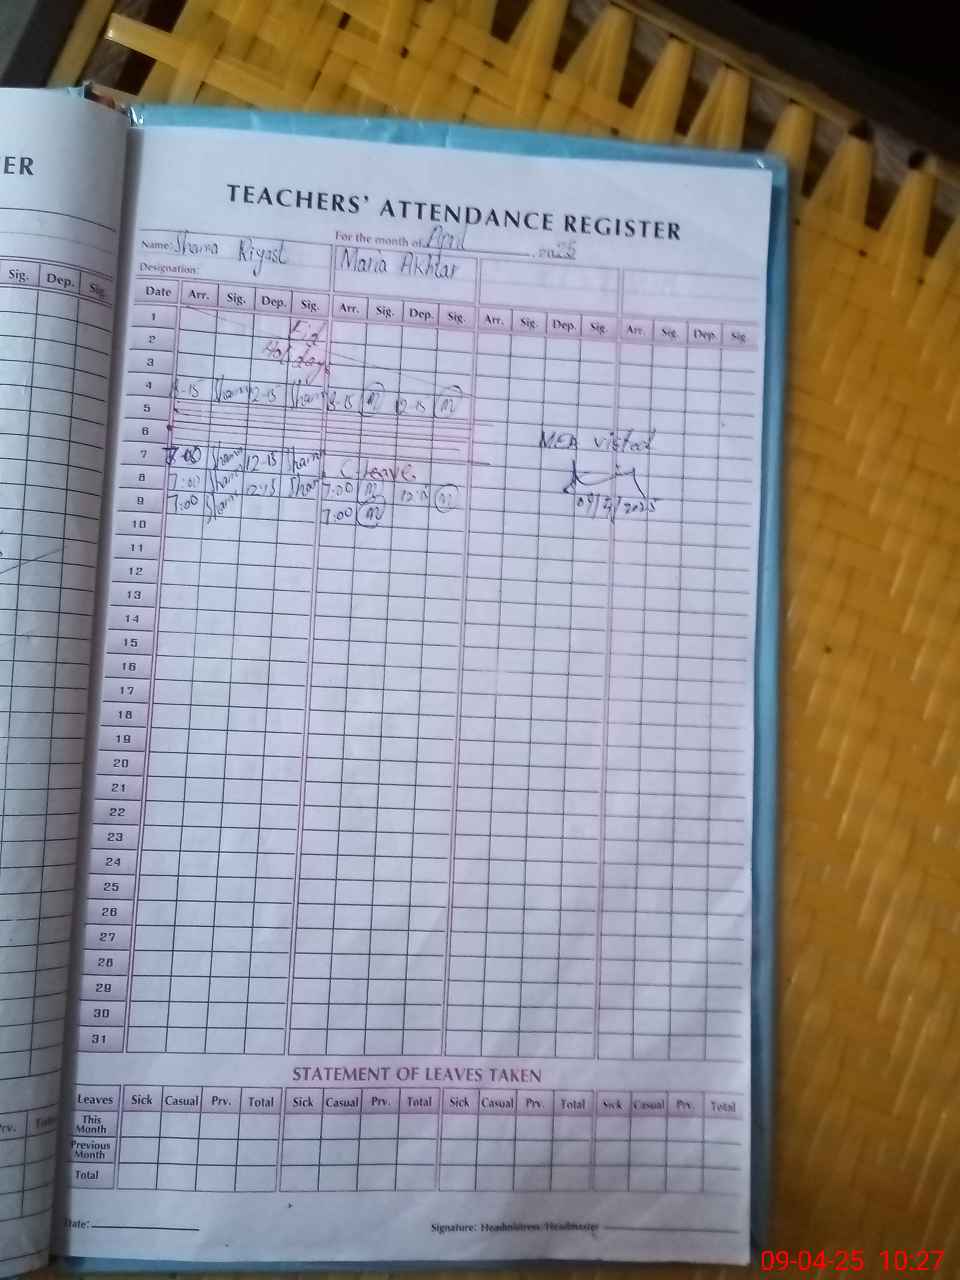 ER
TEACHERS' ATTENDANCE REGISTER
For the month of April 2025
Name: Shama Riyast Maria Akhtar
Designation:
Sig. Dep. Sig.
Date Arr. Sig. Dep. Sig. Arr. Sig. Dep. Sig. Arr. Sig. Dep. Sig. Arr. Sig. Dep. Sig.
1 Eid
2 Holiday
3
4 8-15 Sham 12-15 Sham 8-15 M 12-15 M
5
6 MEA visited
7 7:00 Sham 12-15 Sham C-leave
8 7:00 Sham 12:15 Sham 7:00 M 12:15 M
9 7:00 Sham 7:00 M 09/4/2025
10
11
12
13
14
15
16
17
18
19
20
21
22
23
24
25
26
27
28
29
30
31
STATEMENT OF LEAVES TAKEN
Leaves Sick Casual Prv. Total Sick Casual Prv. Total Sick Casual Prv. Total Sick Casual Prv. Total
This Month
Previous Month
Total
Date:
Signature: Headmistress/Headmaster
09-04-25 10:27